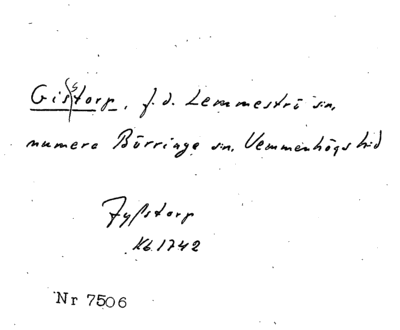 Gisstorp, f.d. Lemmeströ sn,
numera Börringe sn, Vemmenhögs hd
Jyßstorp
Kb 1742
Nr 7506